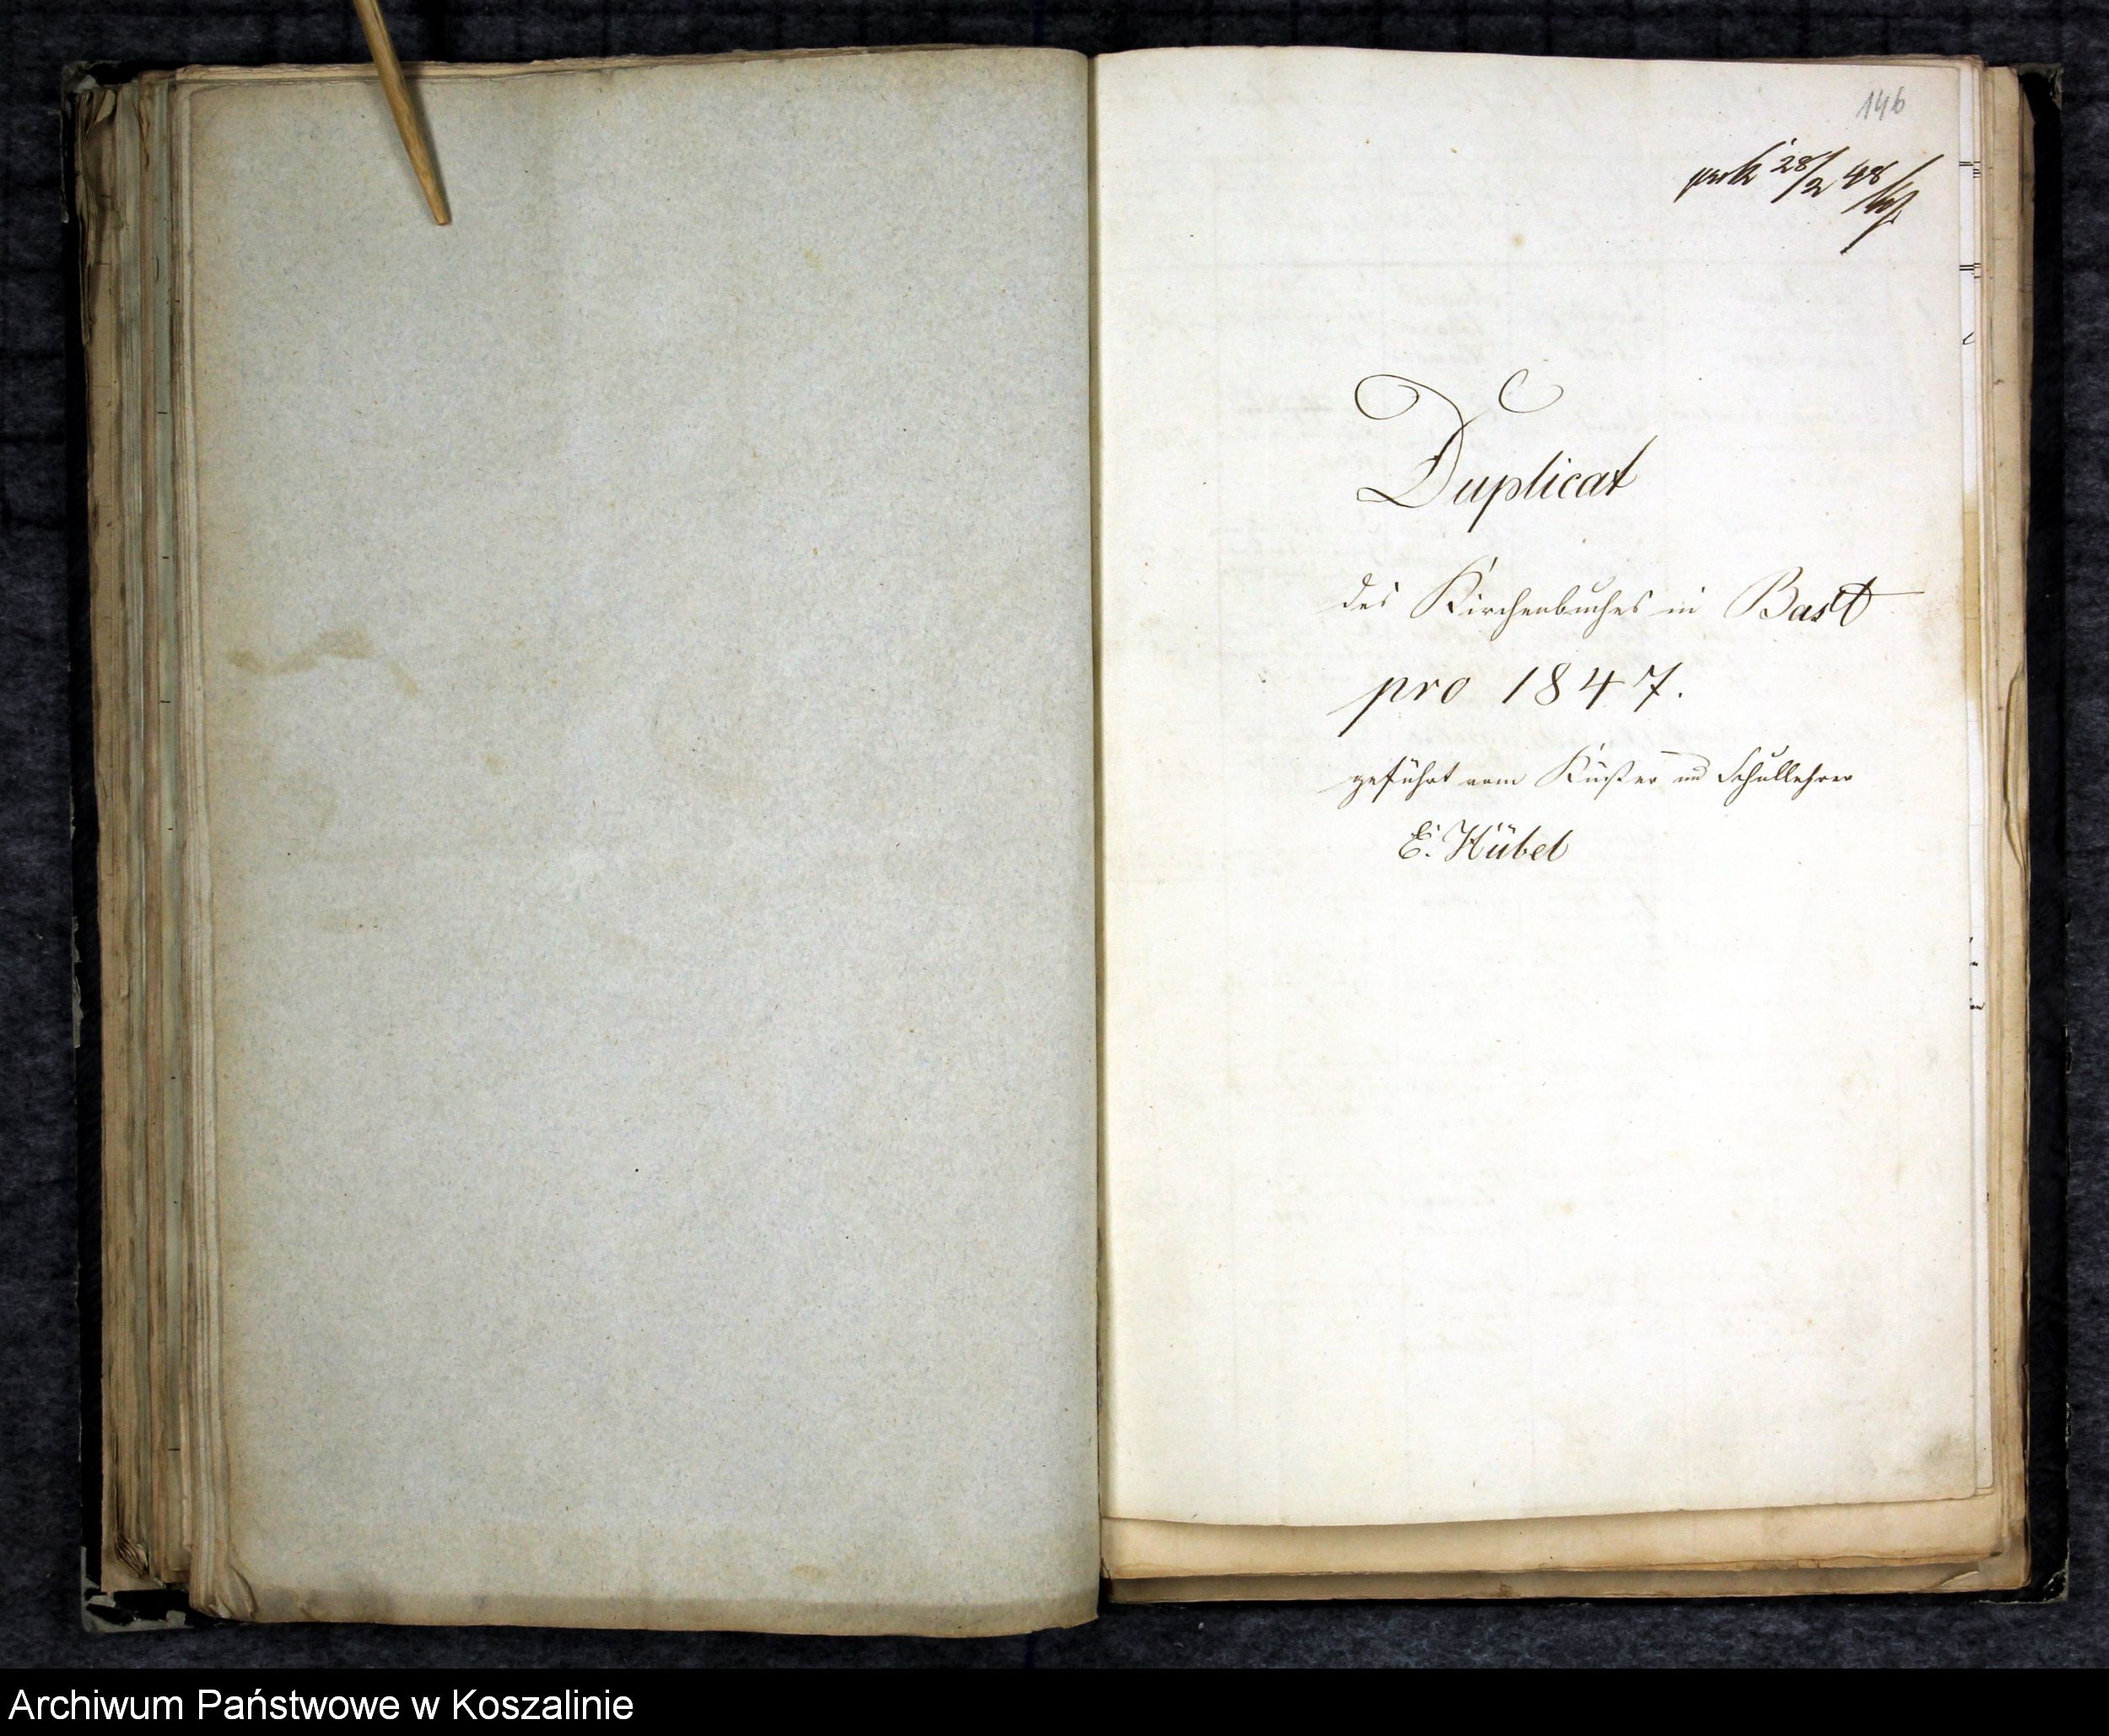 146
28/2 48
Duplicat
des Kirchenbuches in Bast
pro 1847.
geführt vom Küster und Schullehrer
E. Hübel
Archiwum Państwowe w Koszalinie